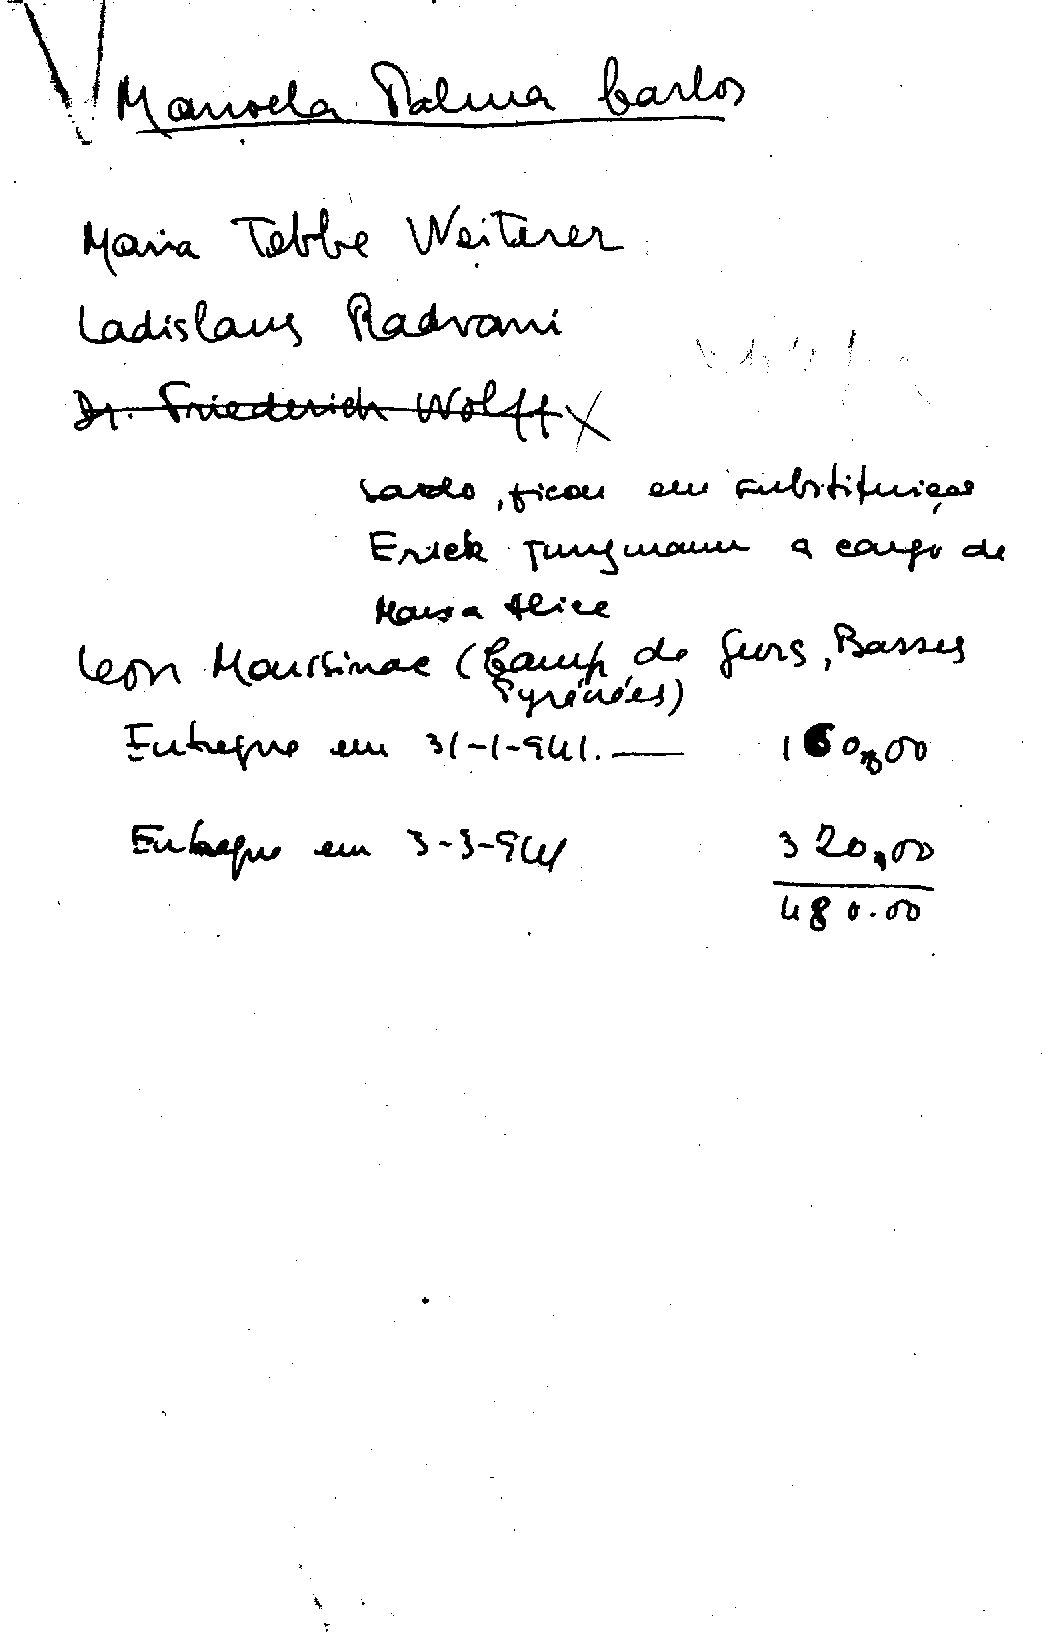 Manuela Palma Carlos
Maria Tebbe Weiterer
Ladislaus Radvani
Dr. Friederich Wolff X
, ficou em substituição
Erick Jungmann a cargo de
Maria Alice
Leon Moussinac (Camp de Gurs, Basses
Pyrénées)
Entregue em 31-1-941. — 160,00
Entregue em 3-3-941 320,00
480.00